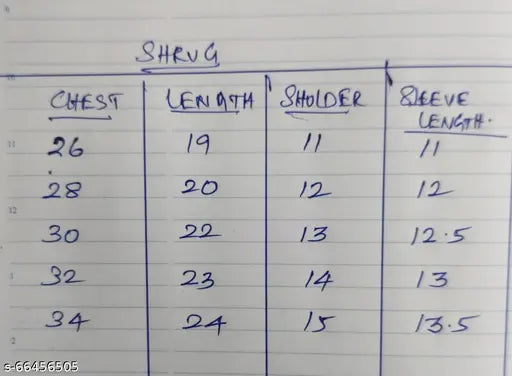 SHRUG
CHEST LENGTH SHOLDER SLEEVE LENGTH.
26 19 11 11
28 20 12 12
30 22 13 12.5
32 23 14 13
34 24 15 13.5
s-66456505